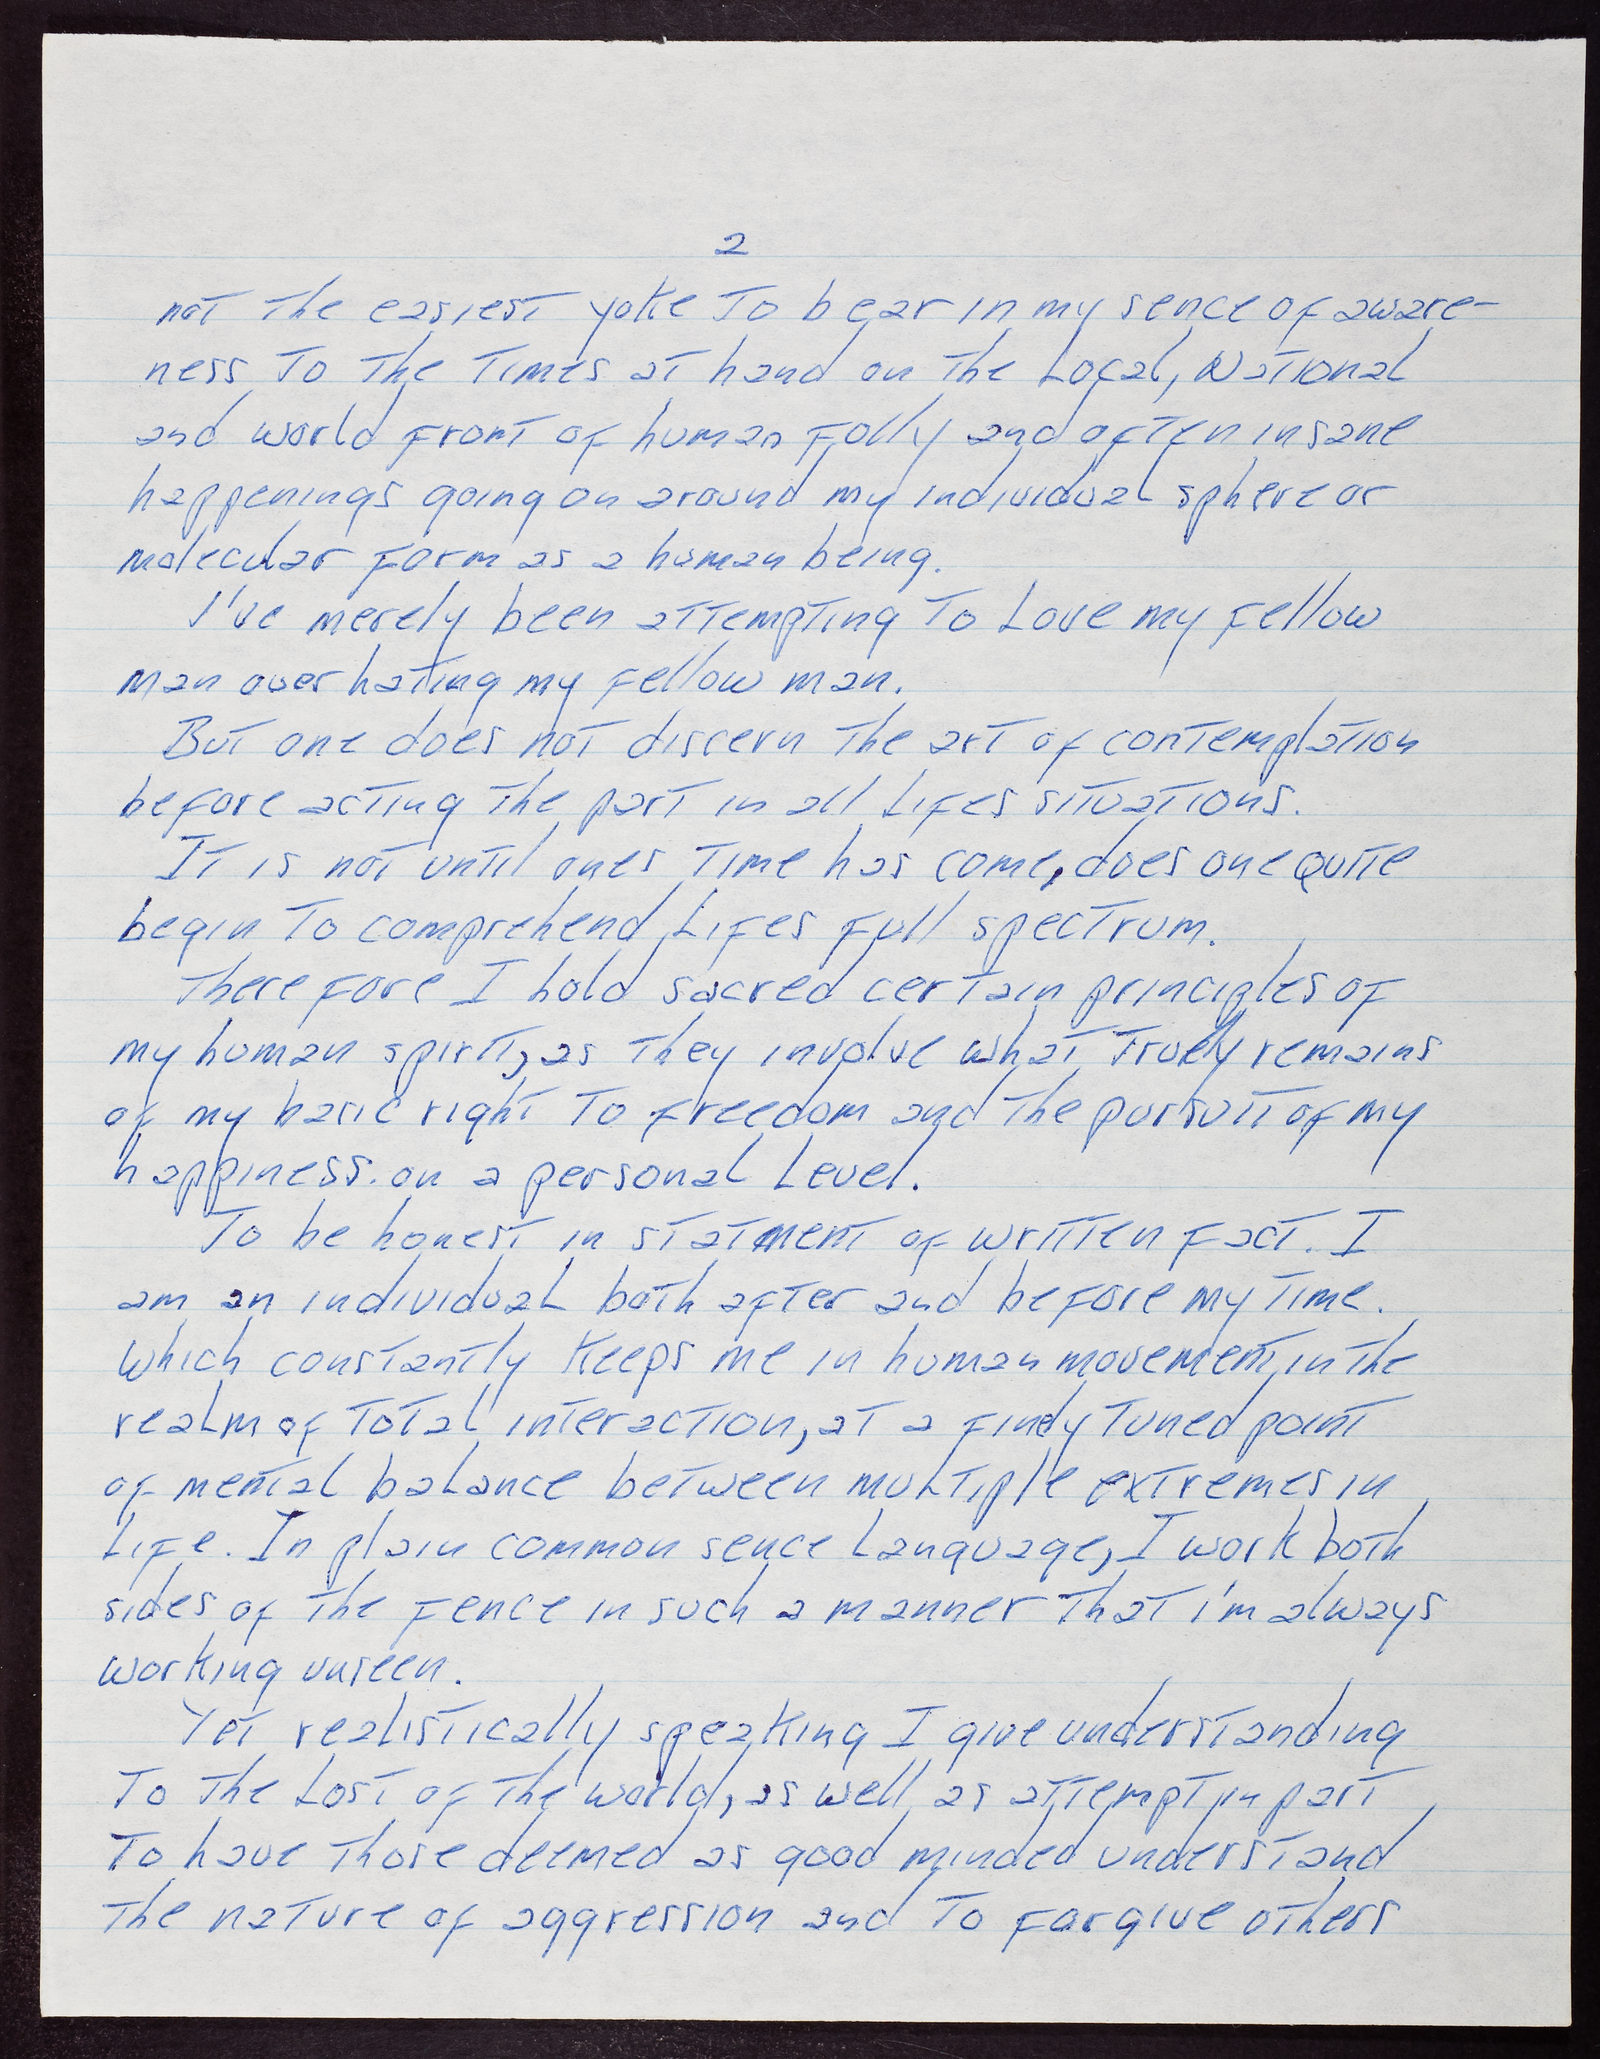 2
not the easiest yoke to bear in my sence of aware-
ness to the times at hand on the Local, National
and world front of human folly and often insane
happenings going on around my individual sphere or
molecular form as a human being.
I've merely been attempting to Love my fellow
man over hating my fellow man.
But one does not discern the art of contemplation
before acting the part in all Lifes situations.
It is not until ones time has come, does one quite
begin to comprehend Lifes full spectrum.
Therefore I hold sacred certain principles of
my human spirit, as they involve what truely remains
of my basic right to freedom and the pursuit of my
happiness. on a personal Level.
To be honest in statment of written fact. I
am an individual both after and before my time.
Which constantly keeps me in human movement, in the
realm of total interaction, at a finely tuned point
of mental balance between multiple extremes in
Life. In plain common sence Language, I work both
sides of the fence in such a manner that i'm always
working unseen.
Yet realistically speaking I give understanding
to the Lost of the world, as well as attempt in part
to have those deemed as good minded understand
the nature of aggression and to forgive others